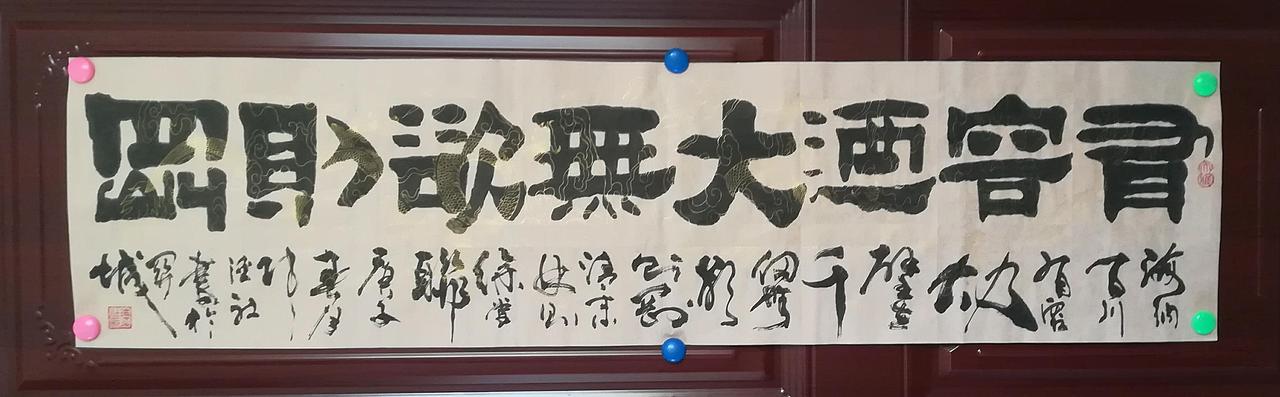 有容迺大無欲則剛
海納百川有容乃大壁立千仞無欲則剛清末林則徐堂聯庚子春月書於城